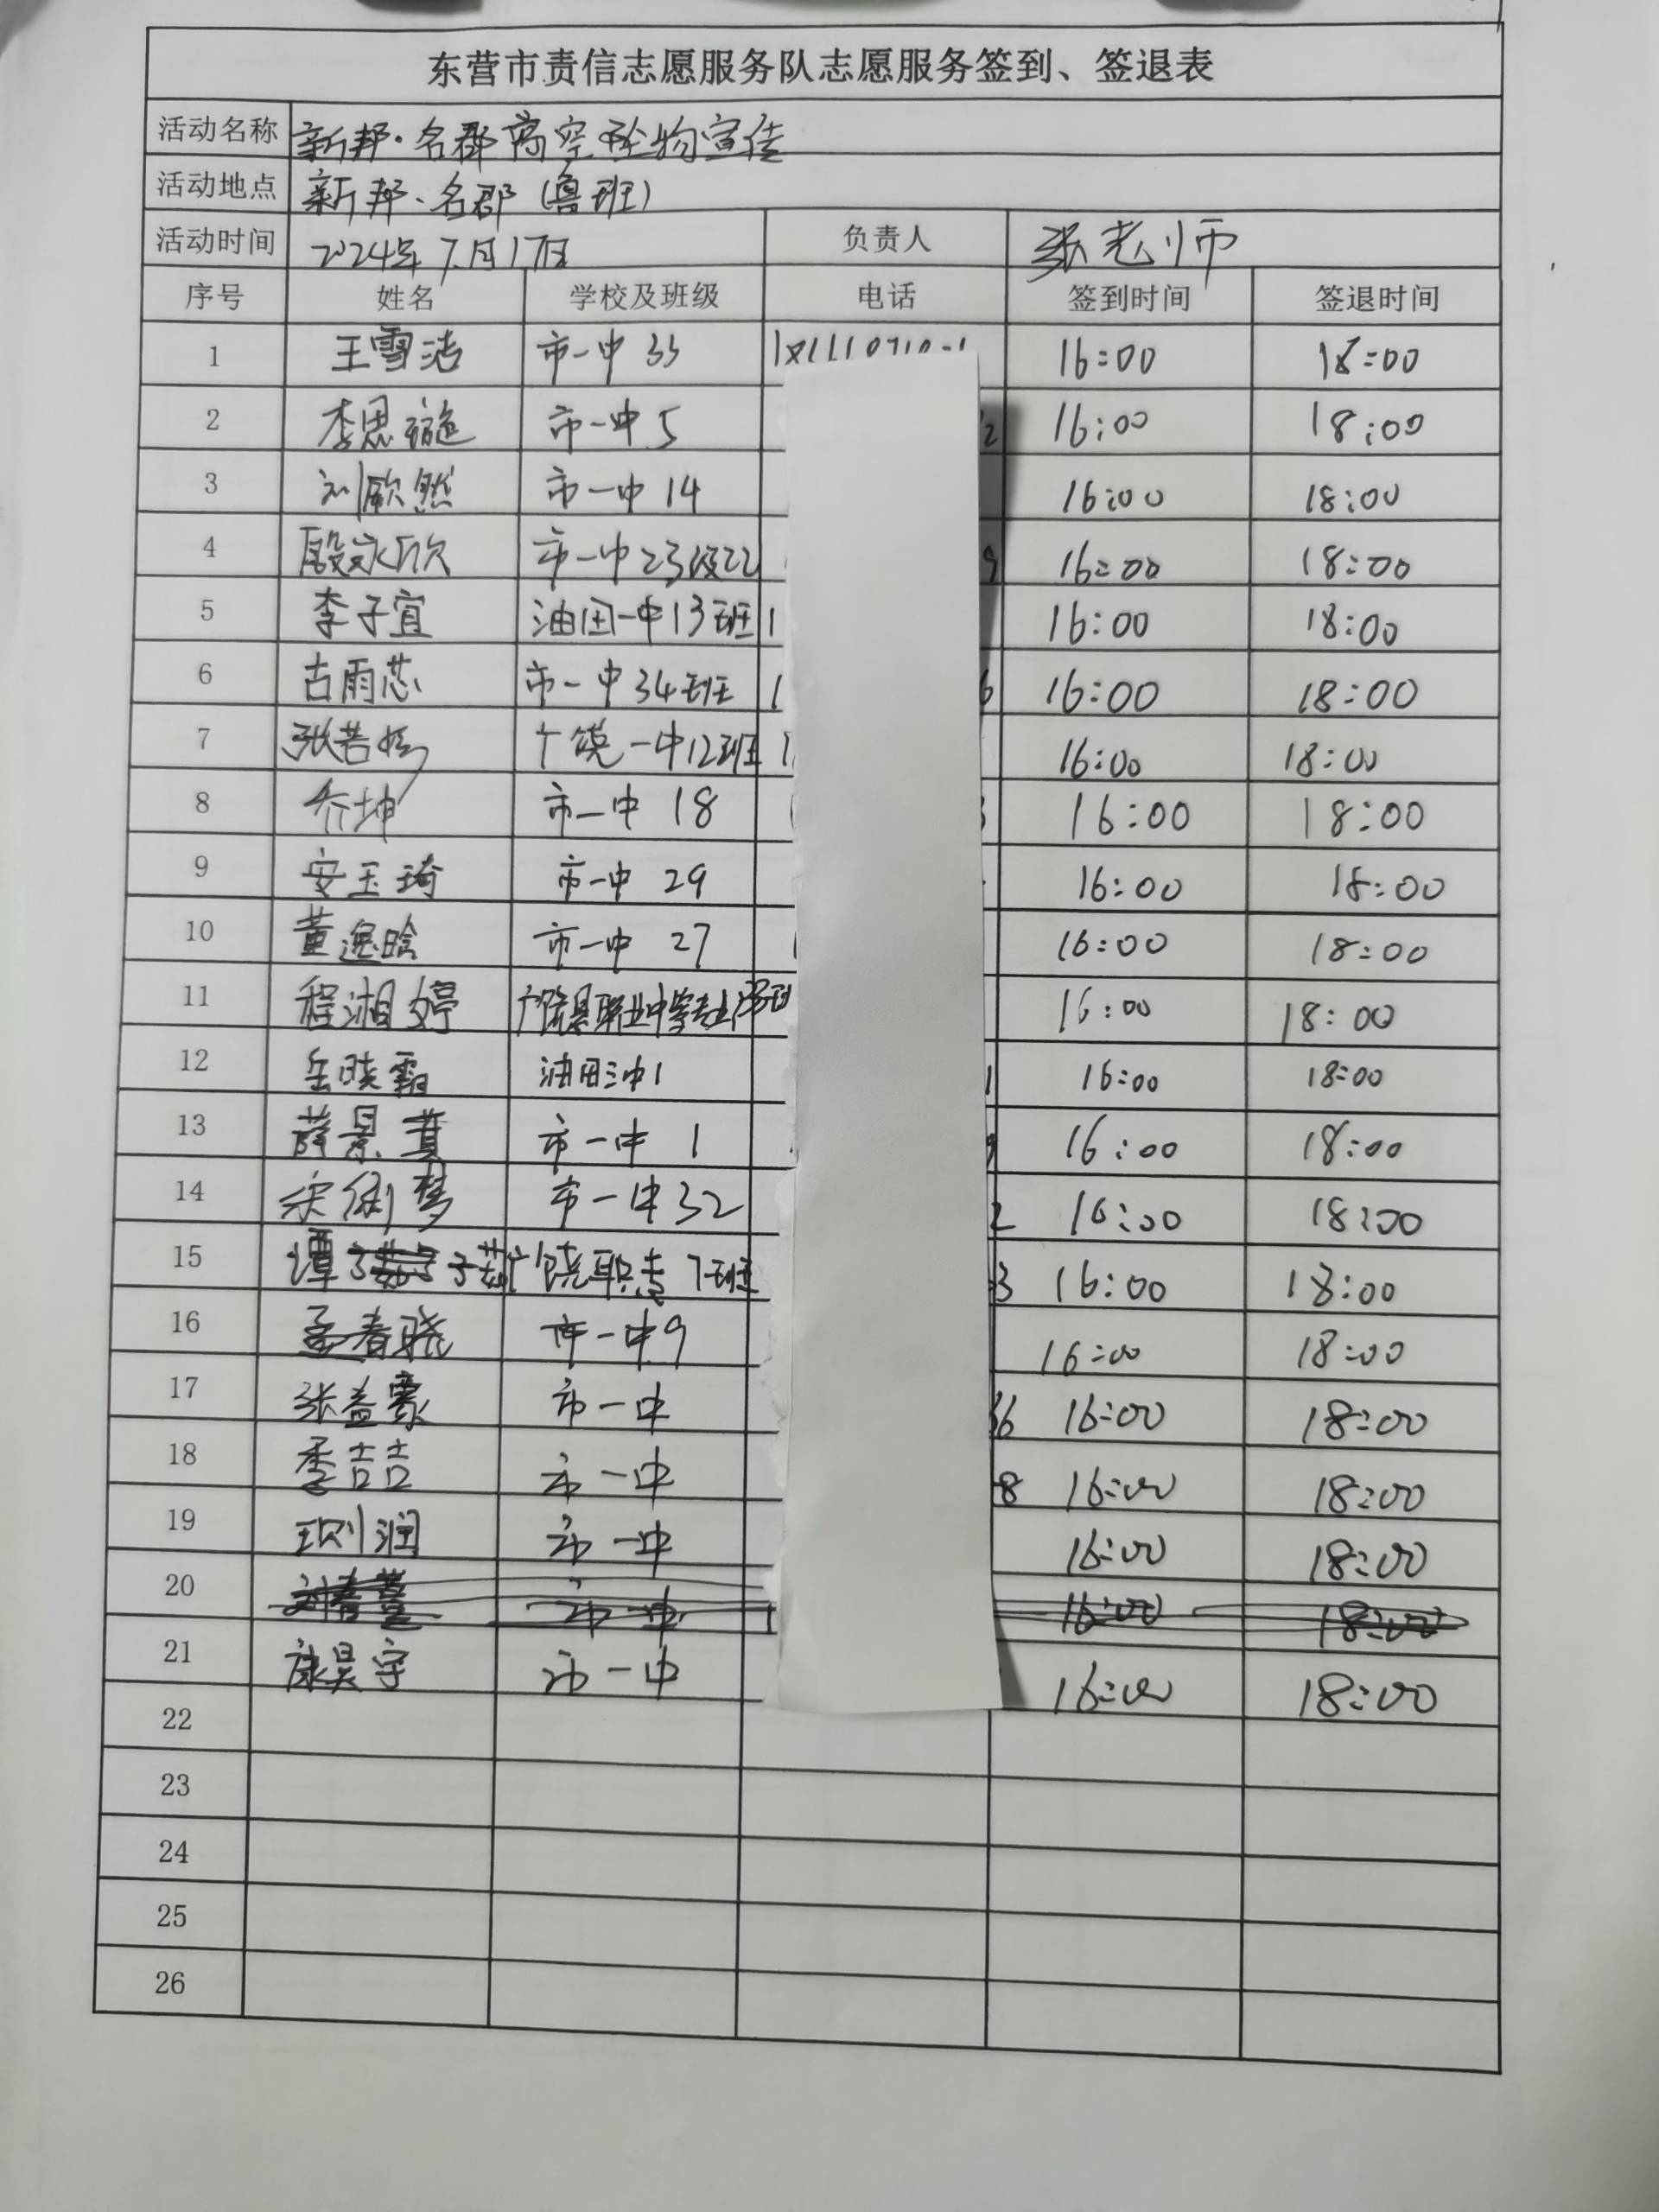 东营市责信志愿服务队志愿服务签到、签退表
活动名称 新邦·名郡高空坠物宣传
活动地点 新邦·名郡(鲁班)
活动时间 2024年7月17日 负责人 张老师
序号 姓名 学校及班级 电话 签到时间 签退时间
1 王雪洁 市一中 33 16:00 18:00
2 李思璇 市一中 5 16:00 18:00
3 刘歆然 市一中 14 16:00 18:00
4 殷永欣 市一中23级22 9 16:00 18:00
5 李子宜 油田一中13班 1 16:00 18:00
6 古雨芯 市一中34班 1 6 16:00 18:00
7 张若 广饶一中12班 1 16:00 18:00
8 乔坤 市一中 18 3 16:00 18:00
9 安玉琦 市一中 29 16:00 18:00
10 董逸晗 市一中 27 16:00 18:00
11 程湘婷 广饶县职业中等专业 16:00 18:00
12 岳晓霜 油田三中1 1 16:00 18:00
13 薛景萁 市一中 1 9 16:00 18:00
14 宋俐梦 市一中32 2 16:00 18:00
15 谭子茹 广饶职专 7班 3 16:00 18:00
16 孟春晓 市一中9 16:00 18:00
17 张益豪 市一中 36 16:00 18:00
18 季吉吉 市一中 8 16:00 18:00
19 润 市一中 16:00 18:00
20 市一中 1 16:00 18:00
21 康昊宇 市一中 16:00 18:00
22
23
24
25
26